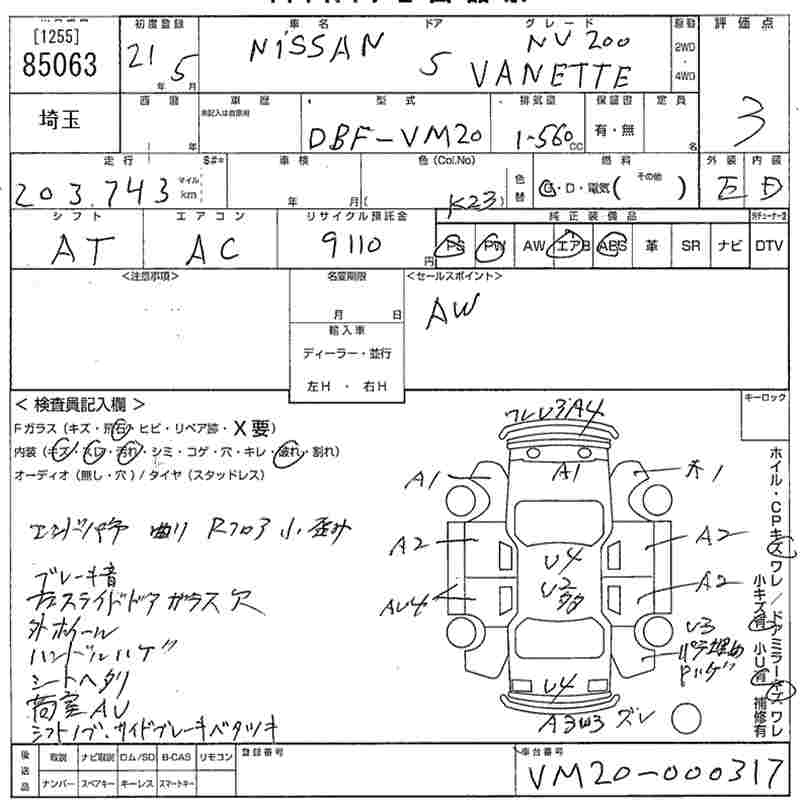 [1255]
85063
初度登録
21 年 5 月
車名
NiSSAN
ドア
5
グレード
NV200
VANETTE
2WD
4WD
評価点
3
埼玉
車歴
未記入は自家用
型式
DBF-VM20
排気量
1-560 cc
保証書
有・無
定員
名
走行
203,743
マイル
km
車検
年 月
色(Col.No)
K23
色替
燃料
G・D・電気( その他 )
外装
E
内装
D
シフト
AT
エアコン
AC
リサイクル預託金
9110 円
純正装備品
PS PW AW エアB ABS 革 SR ナビ
DTV
<注意事項>
名変期限
月 日
輸入車
ディーラー・並行
左H ・ 右H
<セールスポイント>
AW
キーロック
< 検査員記入欄 >
Fガラス (キズ・飛石・ヒビ・リペア跡・X要)
内装 (キズ・スレ・汚れ・シミ・コゲ・穴・キレ・破れ・割れ)
オーディオ (無し・穴) / タイヤ (スタッドレス)
曲り Rフロア 小歪み
ブレーキ音
左スライドドアガラス穴
外ホイール
ハンドルハゲ
シートヘタリ
荷室AU
シフトノブ・サイドブレーキベタツキ
ワレU3A4
A1
A1
A2
A2
U4
U2
多
AU4
A2
U3
パテ埋め
Pハゲ
U4
A3W3 ズレ
ホイル・CPキズワレ/ドアミラーキズワレ
小キズ有 小U有 補修有
後送品
取説 ナビ取説 ロム/SD B-CAS リモコン
ナンバー スペアキー キーレス スマートキー
登録番号
車台番号
VM20-000317